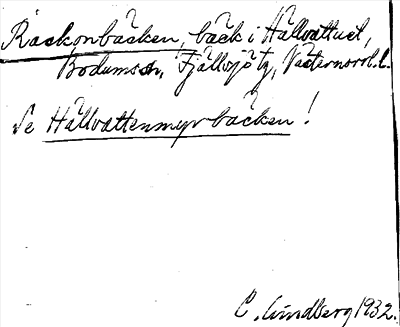 Räckonbäcken, bäck i Hällvattnet,
Bodums sn, Fjällsjö tg, Västernorrl. l.
Se Hällvattenmyrbäcken!
C. Lindberg 1932.